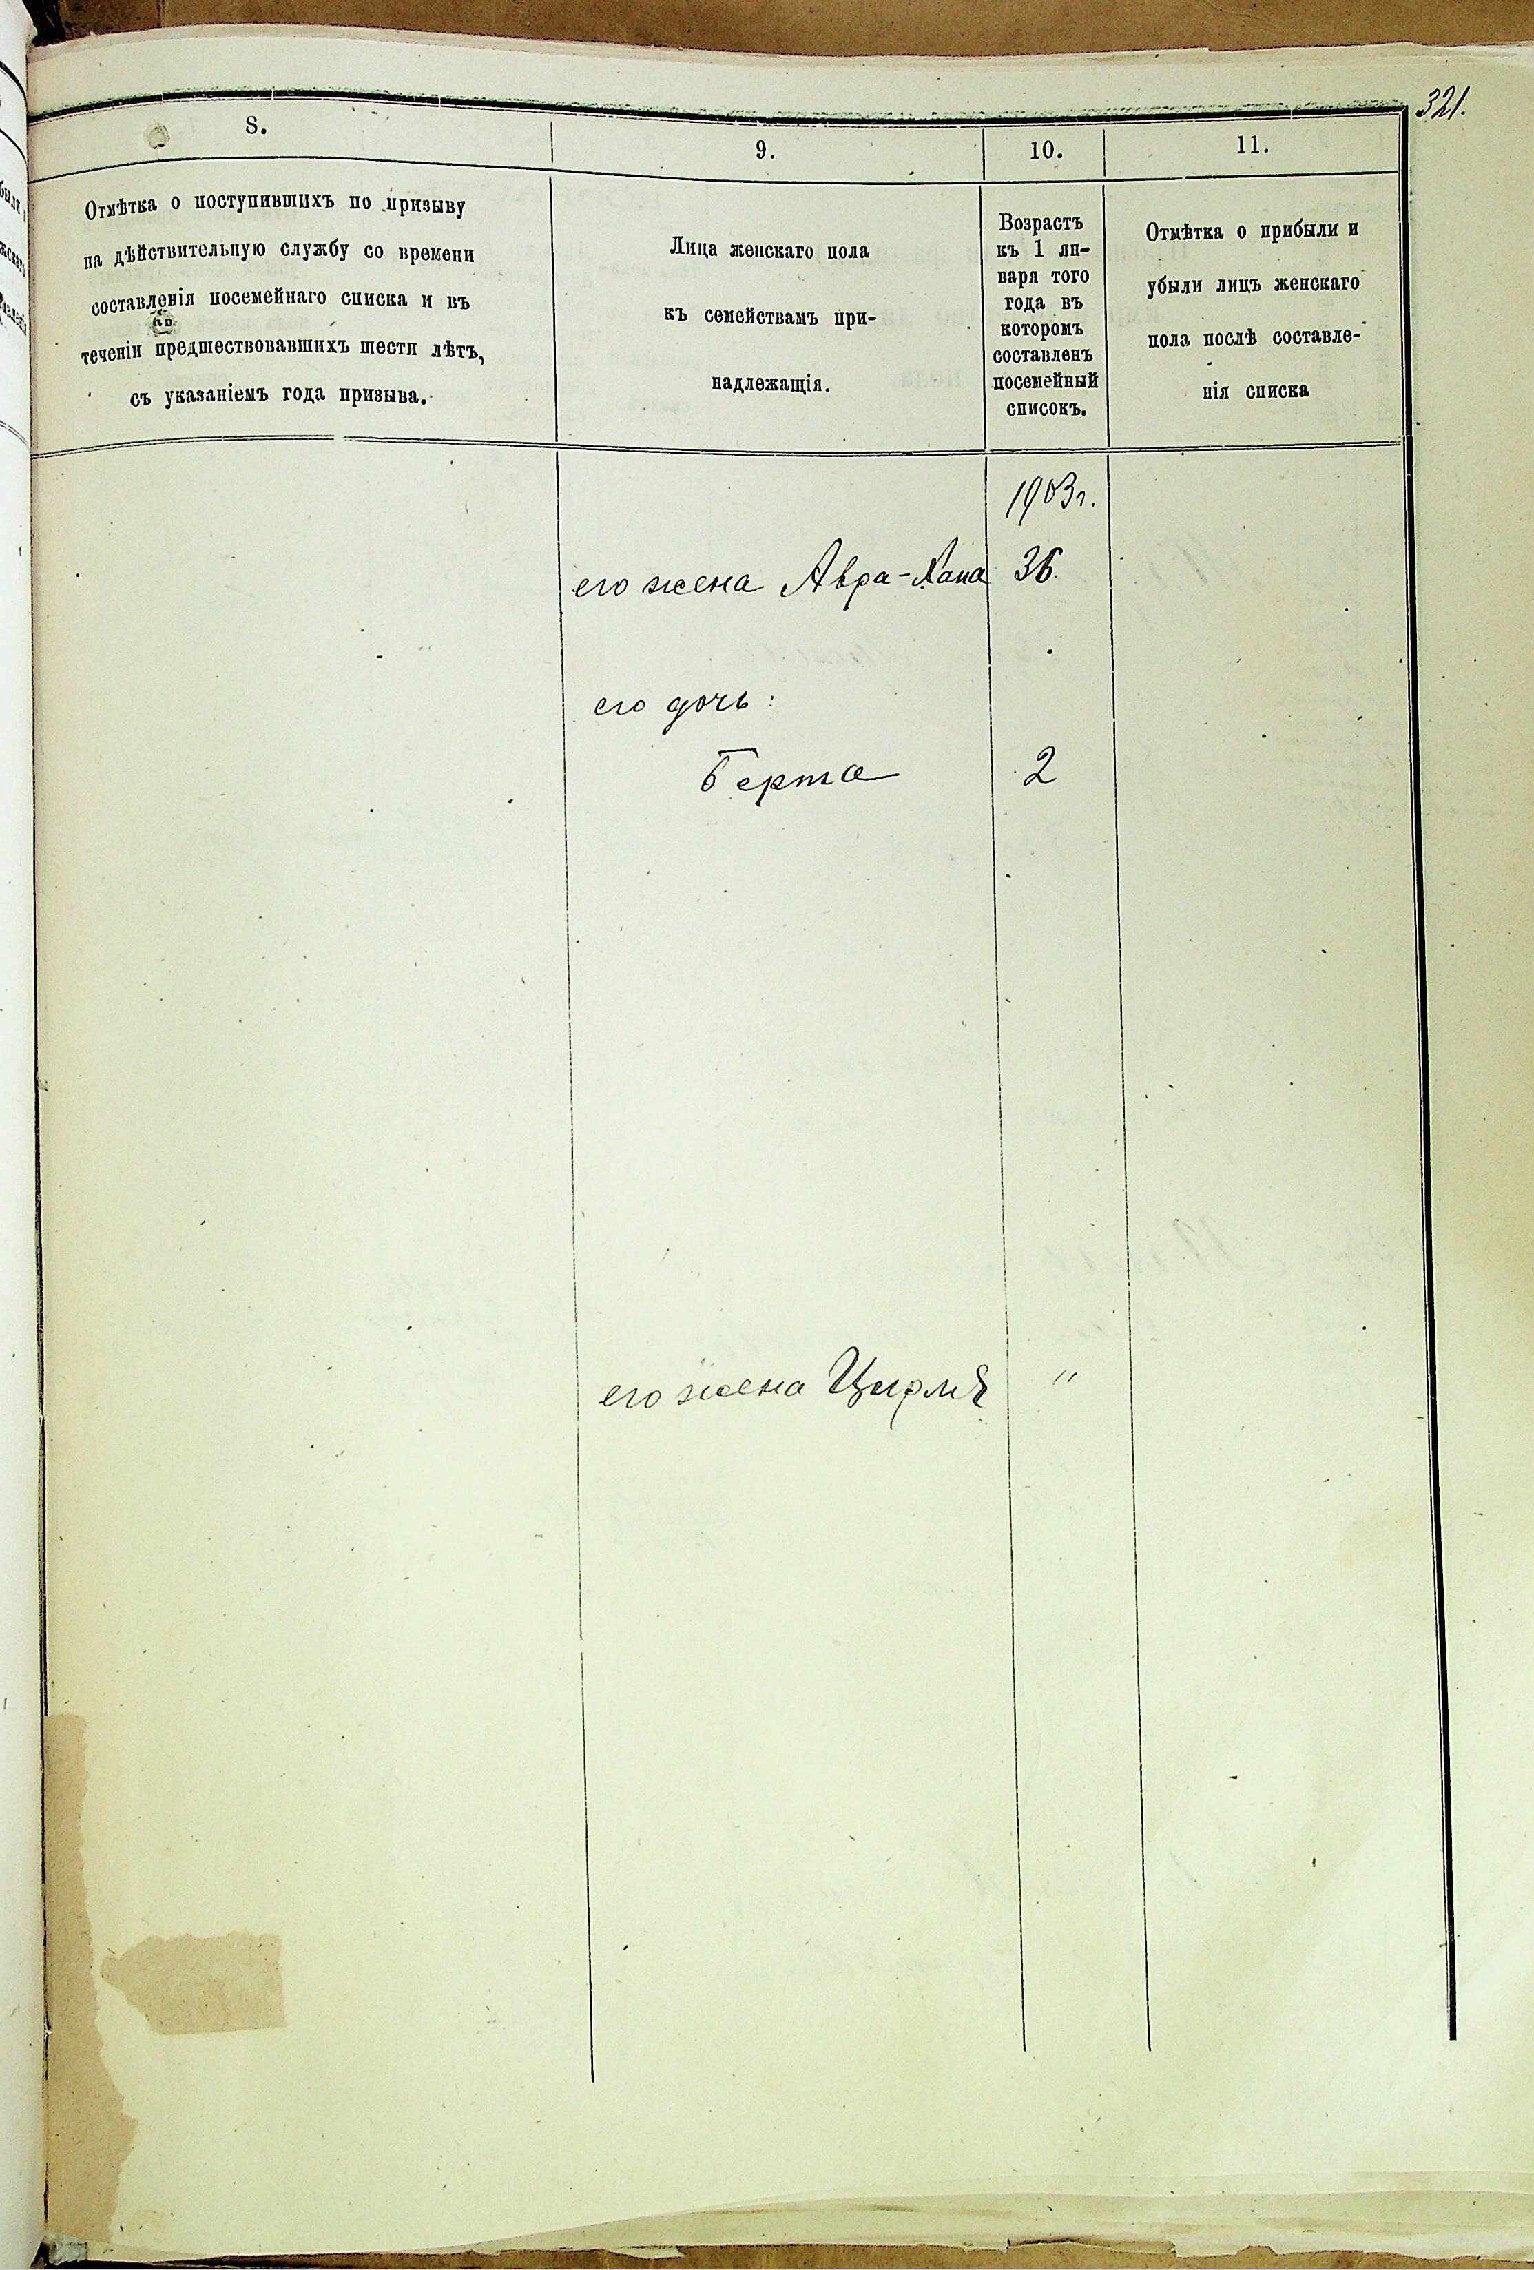 321.
8.
9.
10.
11.
Отмѣтка о поступившихъ по призыву
на дѣйствительную службу со времени
составленія посемейнаго списка и въ
теченіи предшествовавшихъ шести лѣтъ,
съ указаніемъ года призыва.
Лица женскаго пола
къ семействамъ при-
надлежащія.
Возрастъ
къ 1 ян-
варя того
года въ
которомъ
составленъ
посемейный
списокъ.
Отмѣтка о прибыли и
убыли лицъ женскаго
пола послѣ составле-
нія списка
1903 г.
его жена Авра-Хана 36.
его дочь:
Берта 2
его жена "